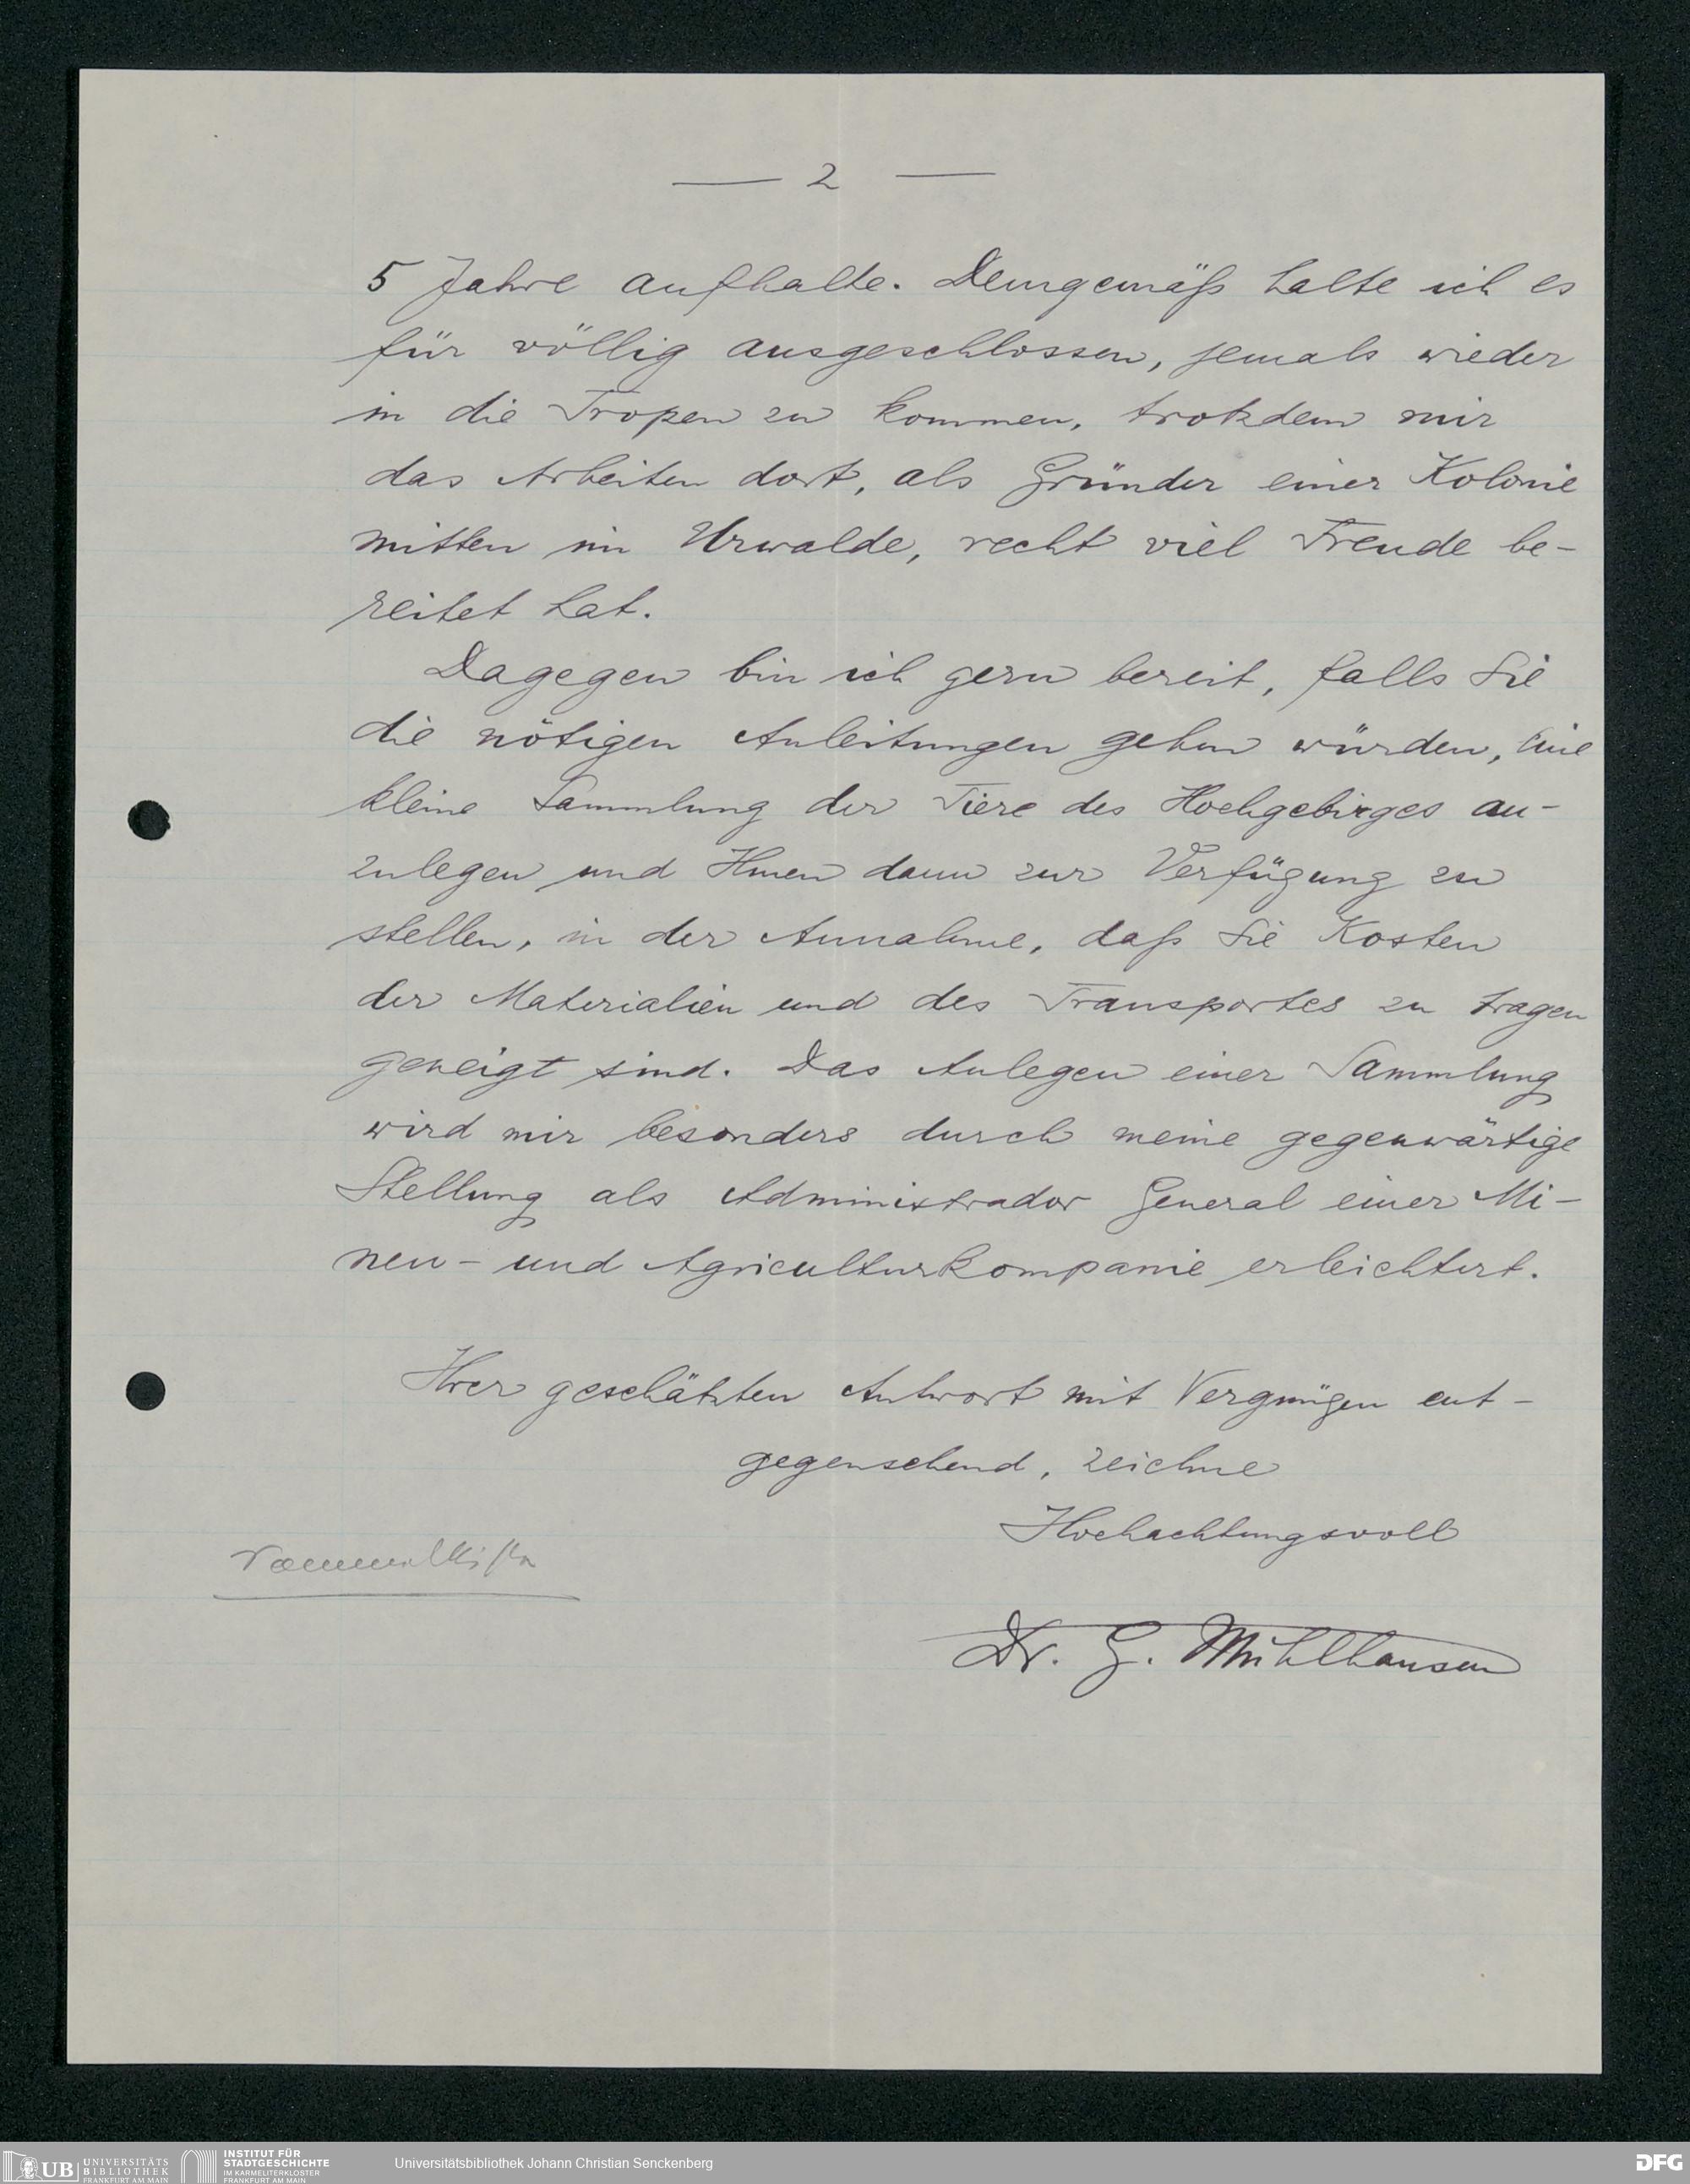 — 2 —
5 Jahre aufhalte. Demgemäß halte ich es
für völlig ausgeschlossen, jemals wieder
in die Tropen zu kommen, trotzdem mir
das Arbeiten dort, als Gründer einer Kolonie
mitten im Urwalde, recht viel Freude be-
reitet hat.
Dagegen bin ich gern bereit, falls Sie
die nötigen Anleitungen geben würden, eine
kleine Sammlung der Tiere des Hochgebirges an-
zulegen und Ihnen dann zur Verfügung zu
stellen, in der Annahme, daß Sie Kosten
der Materialien und des Transportes zu tragen
geneigt sind. Das Anlegen einer Sammlung
wird mir besonders durch meine gegenwärtige
Stellung als Administrador General einer Mi-
nen- und Agriculturkompanie erleichtert.
Ihrer geschätzten Antwort mit Vergnügen ent-
gegensehend, zeichne
Hochachtungsvoll
Dr. G. Mühlhausen
UB UNIVERSITÄTS
BIBLIOTHEK
FRANKFURT AM MAIN
INSTITUT FÜR
STADTGESCHICHTE
IM KARMELITERKLOSTER
FRANKFURT AM MAIN
Universitätsbibliothek Johann Christian Senckenberg
DFG